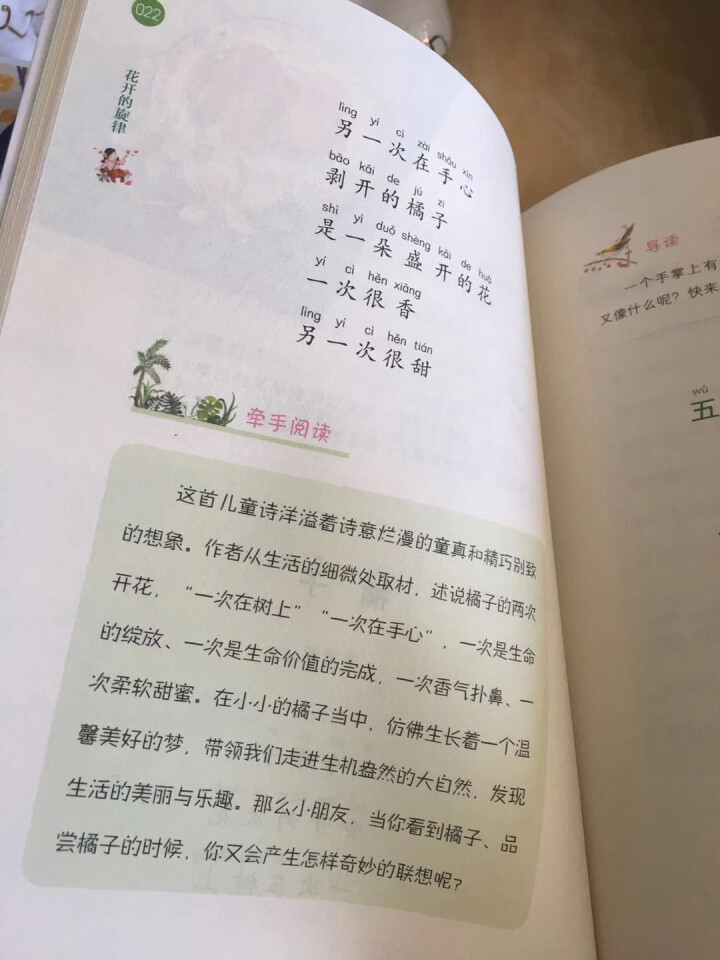 022
花开的旋律
lìng yí cì zài shǒu xīn
另一次在手心
bāo kāi de jú zi
剥开的橘子
shì yì duǒ shèng kāi de huā
是一朵盛开的花
yí cì hěn xiāng
一次很香
lìng yí cì hěn tián
另一次很甜
牵手阅读
这首儿童诗洋溢着诗意烂漫的童真和精巧别致
的想象。作者从生活的细微处取材，述说橘子的两次
开花，“一次在树上”“一次在手心”，一次是生命
的绽放、一次是生命价值的完成，一次香气扑鼻、一
次柔软甜蜜。在小小的橘子当中，仿佛生长着一个温
馨美好的梦，带领我们走进生机盎然的大自然，发现
生活的美丽与乐趣。那么小朋友，当你看到橘子、品
尝橘子的时候，你又会产生怎样奇妙的联想呢？
导读
一个手掌上有
又像什么呢？快来
wǔ
五